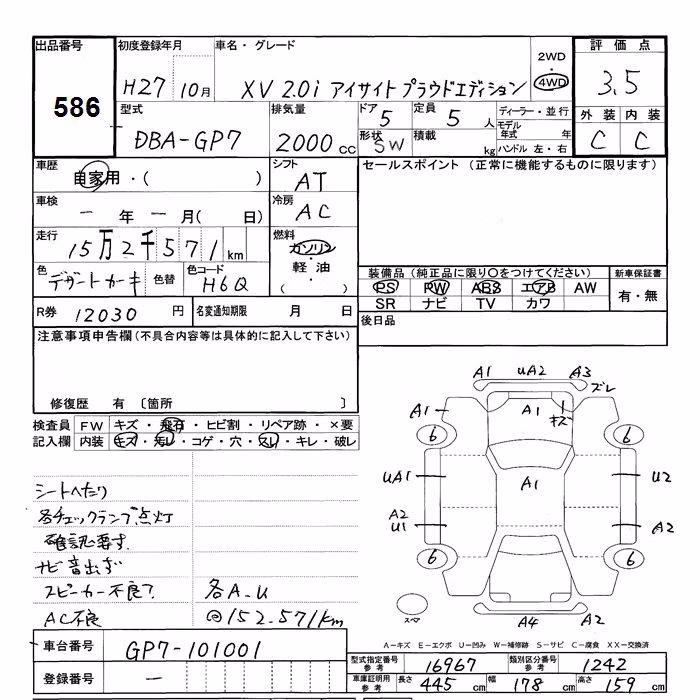 出品番号 初度登録年月 車名・グレード 評価点
586
H27 10月 XV 2.0i アイサイト プラウドエディション 2WD 4WD 3.5
型式 排気量 ドア 定員 ディーラー・並行 外装 内装
DBA-GP7 2000cc 5 5人 モデル年式 年 C C
形状 SW 積載 kg ハンドル 左・右
車歴 自家用・( ) シフト AT セールスポイント (正常に機能するものに限ります)
車検 ー年ー月( 日) 冷房 AC
走行 15万2千571km 燃料 ガソリン・軽油・( )
色 デザートカーキ 色替 色コード H6Q
装備品 (純正品に限り○をつけてください) 新車保証書
PS PW ABS エアB AW 有・無
SR ナビ TV カワ
R券 12030円 名変通知期限 月 日 後日品
注意事項申告欄(不具合内容等は具体的に記入して下さい)
修復歴 有 〔箇所 〕
検査員 FW キズ・飛石・ヒビ割・リペア跡・×要
記入欄 内装 キズ・汚レ・コゲ・穴・スレ・キレ・破レ
シートへたり
各チェックランプ点灯
確認要す
ナビ音出ず
スピーカー不良? 各A.U
AC不良 @152.571km
A1 uA2 A3 ズレ
A1 A1 キズ
6 6
uA1 A1 U2
A2
U1 A2
6 6
スペア A4 A2
A-キズ E-エクボ U-凹み W-補修跡 S-サビ C-腐食 XX-交換済
車台番号 GP7-101001
型式指定番号 参考 16967 類別区分番号 参考 1242
登録番号 ー
車庫証明用 参考 長さ 445cm 幅 178cm 高さ 159cm